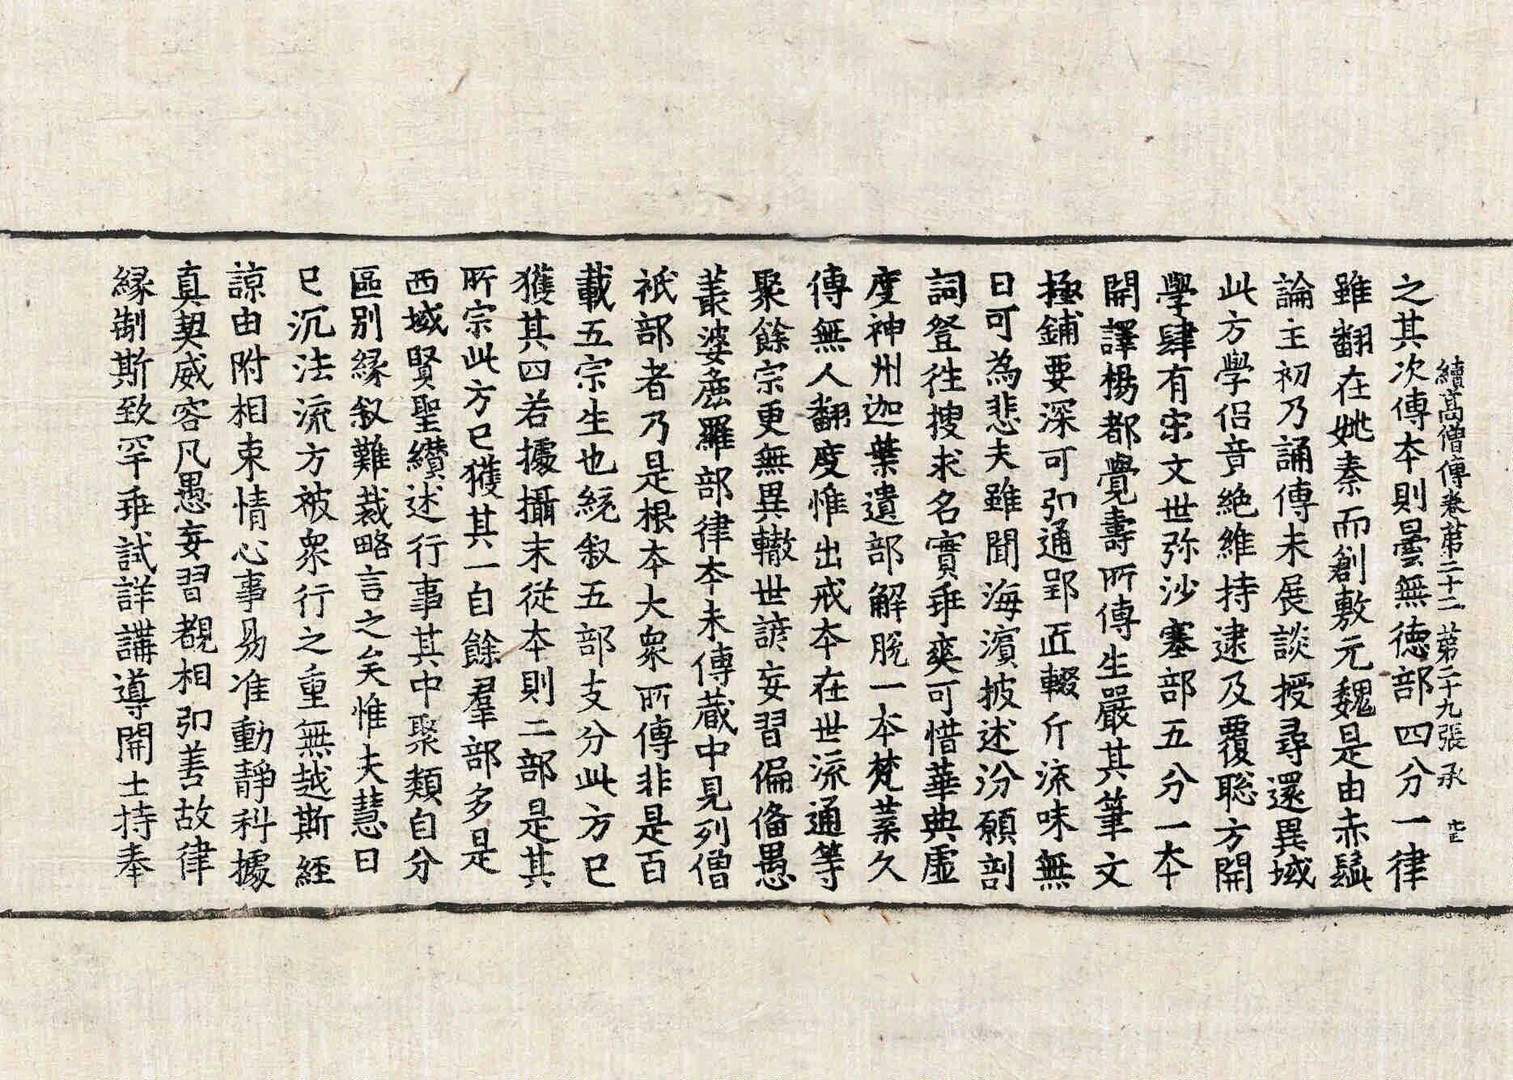 續高僧傳卷第二十二 第二十九張 承
之其次傳本則曇無德部四分一律
雖翻在姚秦而創敷元魏是由赤髭
論主初乃誦傳未展談授尋還異域
此方學侶音絶維持逮及覆聡方開
學肆有宋文世弥沙塞部五分一本
開譯楊都覺壽所傳生嚴其筆文
極鋪要深可引通郢匠輟斤流味無
日可為悲夫雖聞海濵披述汾願剖
詞登往搜求名實乖爽可惜華典虛
度神州迦葉遺部解脱一本梵葉久
傳無人翻度惟出戒本在世流通等
聚餘宗更無異轍世諺妄習偏俻愚
叢婆麁羅部律本未傳蔵中見列僧
祇部者乃是根本大衆所傳非是百
載五宗生也統叙五部支分此方已
獲其四若據攝末從本則二部是其
所宗此方已獲其一自餘羣部多是
西域賢聖纘述行事其中聚類自分
區别縁叙難裁略言之矣惟夫慧日
已沉法流方被衆行之重無越斯經
諒由附相束情心事易准動靜科據
真契威容凡愚妄習覩相引善故律
縁制斯致罕乖試詳講導開士持奉